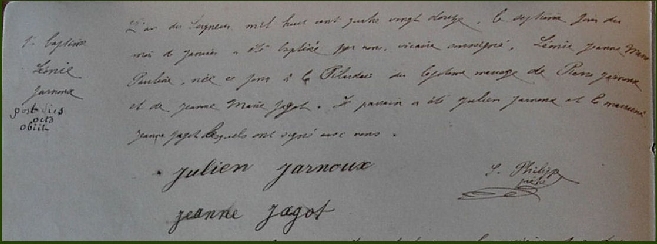 L'an du Seigneur mil huit cent quatre vingt douze, le septième jour du
mois de janvier a été baptisée par nous, vicaire soussigné, Léonie Jeanne Marie
7. baptême
Léonie
Jarnoux
post dies
octo
obiit
Pauline, née ce jour à la du légitime mariage de Pierre Jarnoux
et de Jeanne Marie Jagot. Le parrain a été Julien Jarnoux et la marraine
Jeanne Jagot lesquels ont signé avec nous.
Julien Jarnoux
Jeanne Jagot
Philippe